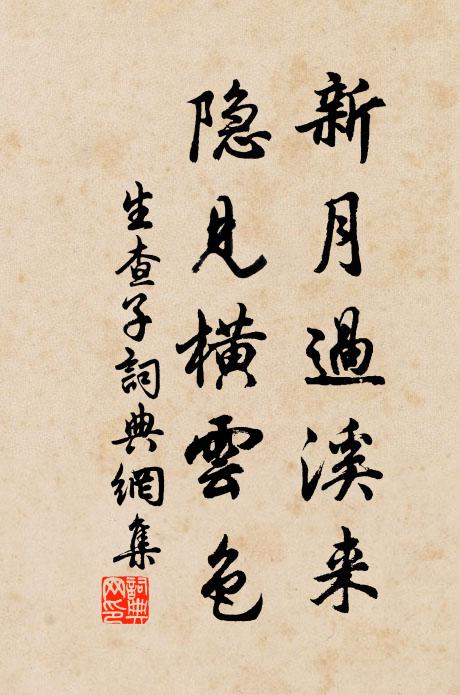 新月過溪来
隐見横雲色
生查子詞典網集
詞典网印